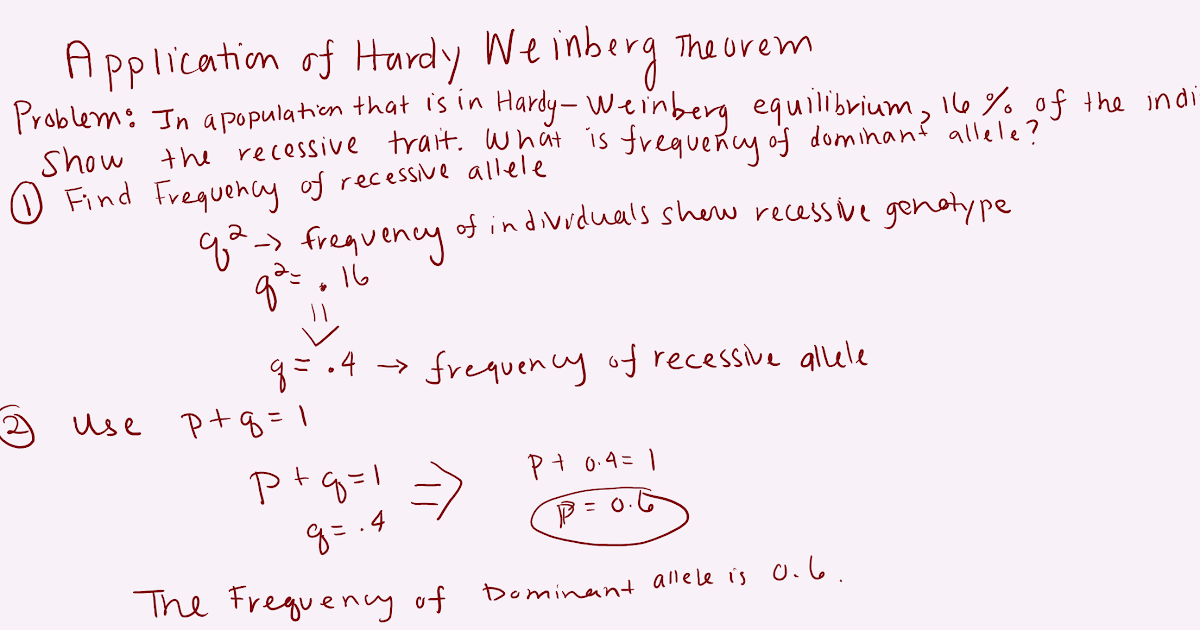 Application of Hardy Weinberg Theorem
Problem: In a population that is in Hardy-Weinberg equilibrium, 16% of the indi
show the recessive trait. What is frequency of dominant allele?
① Find Frequency of recessive allele
q² → frequency of individuals show recessive genotype
q² = .16
q = .4 → frequency of recessive allele
② Use p + q = 1
p + q = 1 ⇒ p + 0.4 = 1
q = .4 p = 0.6
The Frequency of Dominant allele is 0.6.